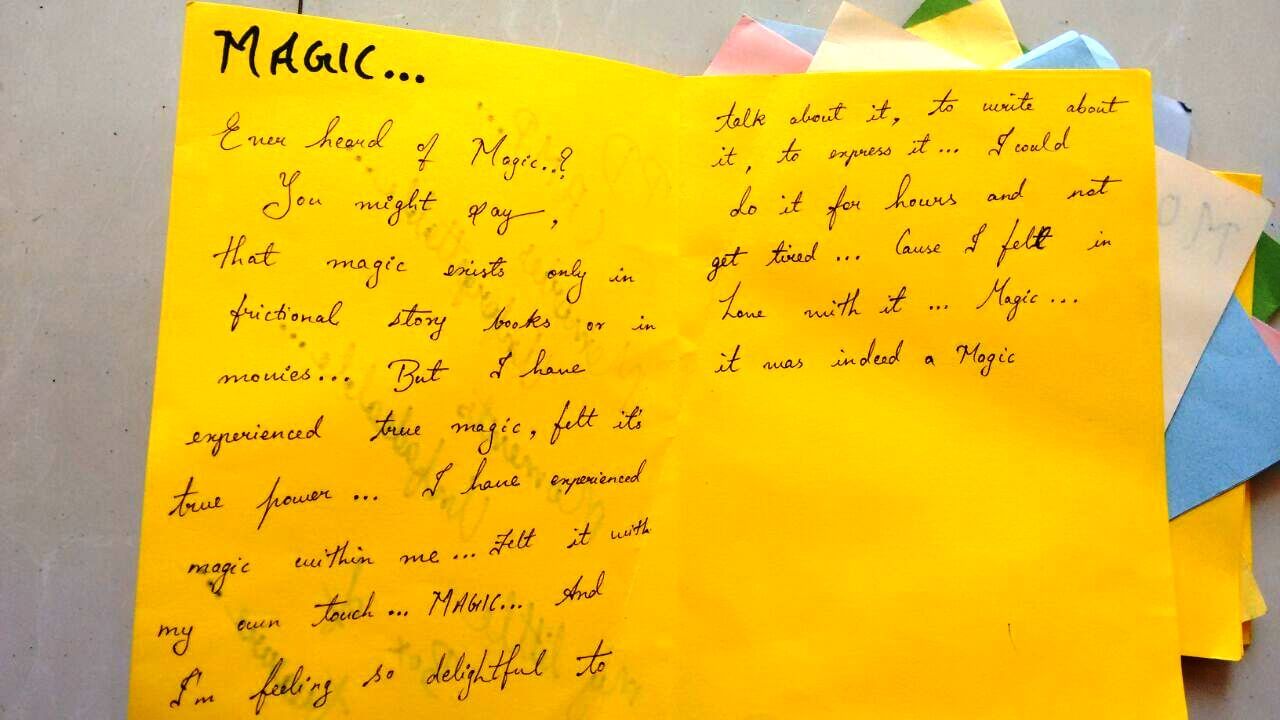 MAGIC...
Ever heard of Magic..?
You might say,
that magic exists only in
frictional story books or in
movies... But I have
experienced true magic, felt it's
true power... I have experienced
magic within me... Felt it with
my own touch... MAGIC... And
I'm feeling so delightful to
talk about it, to write about
it, to express it... I could
do it for hours and not
get tired... Cause I felt in
Love with it... Magic...
it was indeed a Magic